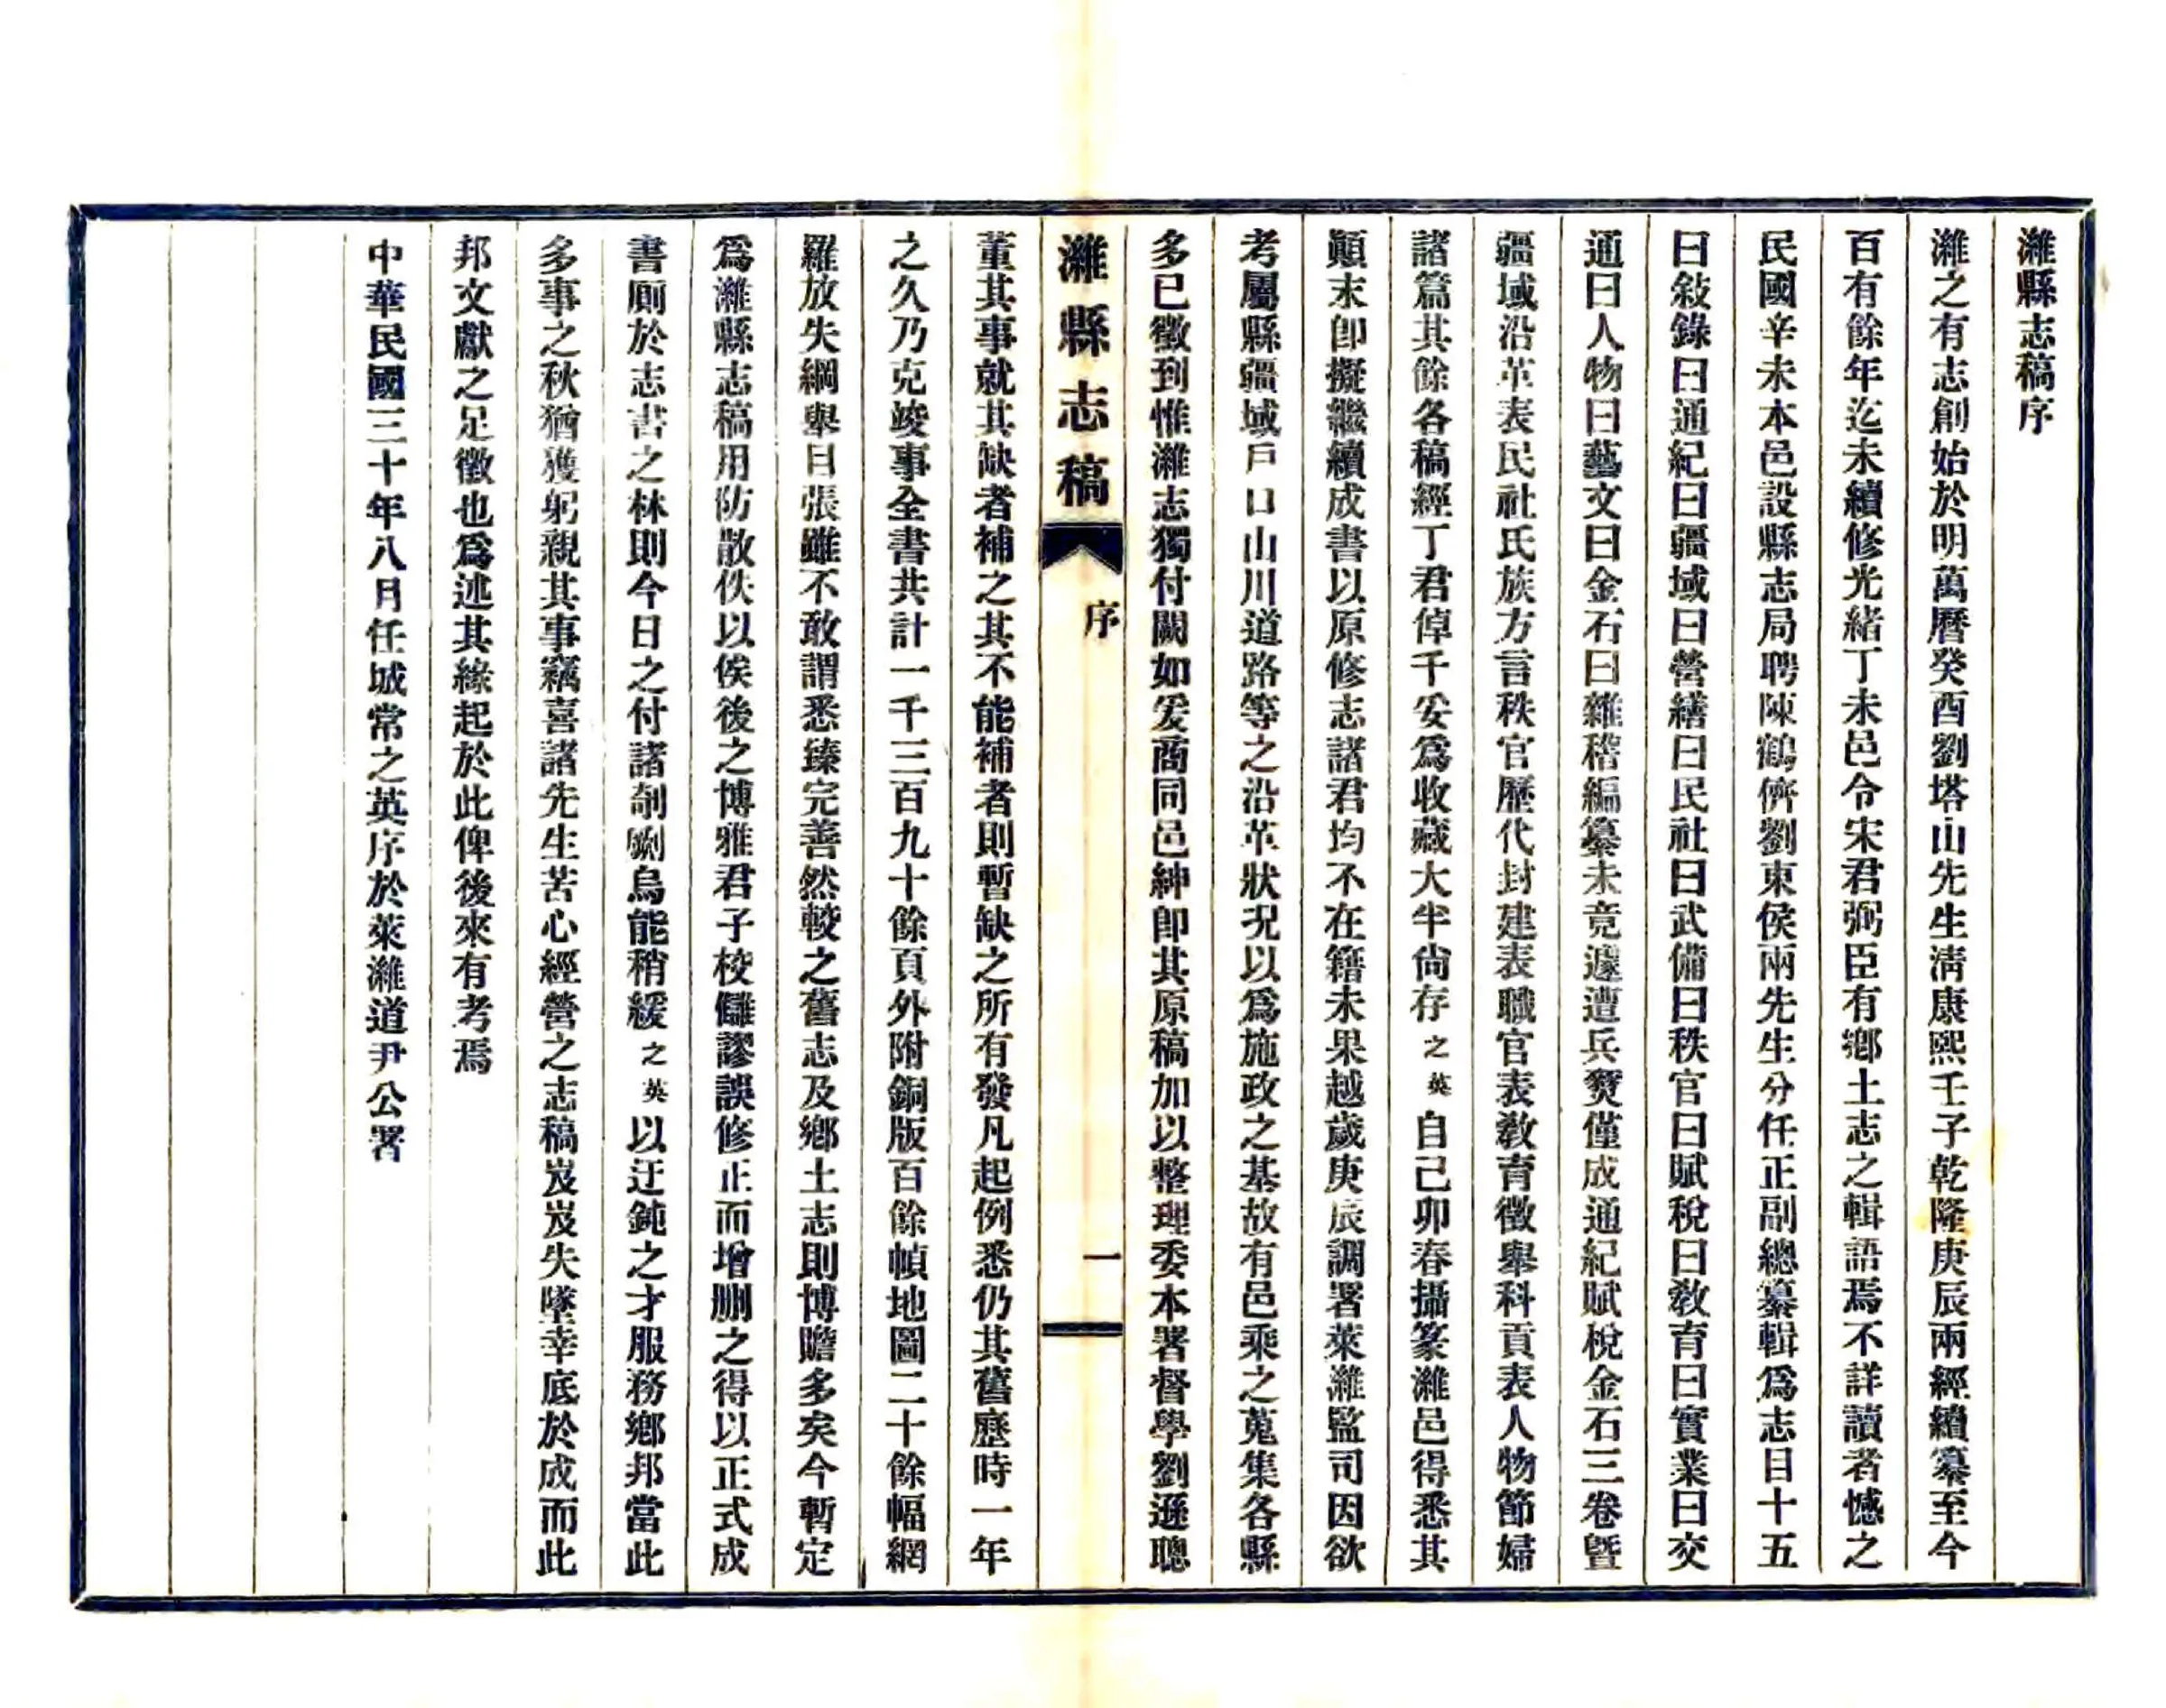 濰縣志稿序
濰之有志創始於明萬曆癸酉劉塔山先生淸康熙壬子乾隆庚辰兩經續纂至今
百有餘年迄未續修光緒丁未邑令宋君弼臣有鄕土志之輯語焉不詳讀者憾之
民國辛未本邑設縣志局聘陳鶴儕劉東侯兩先生分任正副總纂輯爲志目十五
曰敍錄曰通紀曰疆域曰營繕曰民社曰武備曰秩官曰賦稅曰敎育曰實業曰交
通曰人物曰藝文曰金石曰雜稽編纂未竟遽遭兵燹僅成通紀賦稅金石三卷曁
疆域沿革表民社氏族方言秩官歷代封建表職官表敎育徵舉科貢表人物節婦
諸篇其餘各稿經丁君倬千妥爲收藏大半尙存之英自己卯春攝篆濰邑得悉其
顚末卽擬繼續成書以原修志諸君均不在籍未果越歲庚辰調署萊濰監司因欲
考屬縣疆域戶口山川道路等之沿革狀況以爲施政之基故有邑乘之蒐集各縣
多已徵到惟濰志獨付闕如爰商同邑紳卽其原稿加以整理委本署督學劉遜聰
濰縣志稿 序 一
董其事就其缺者補之其不能補者則暫缺之所有發凡起例悉仍其舊歷時一年
之久乃克竣事全書共計一千三百九十餘頁外附銅版百餘幀地圖二十餘幅網
羅放失綱舉目張雖不敢謂悉臻完善然較之舊志及鄕土志則博贍多矣今暫定
爲濰縣志稿用防散佚以俟後之博雅君子校讎謬誤修正而增刪之得以正式成
書廁於志書之林則今日之付諸剞劂烏能稍緩之英以迂鈍之才服務鄕邦當此
多事之秋猶獲躬親其事竊喜諸先生苦心經營之志稿岌岌失墜幸底於成而此
邦文獻之足徵也爲述其緣起於此俾後來有考焉
中華民國三十年八月任城常之英序於萊濰道尹公署